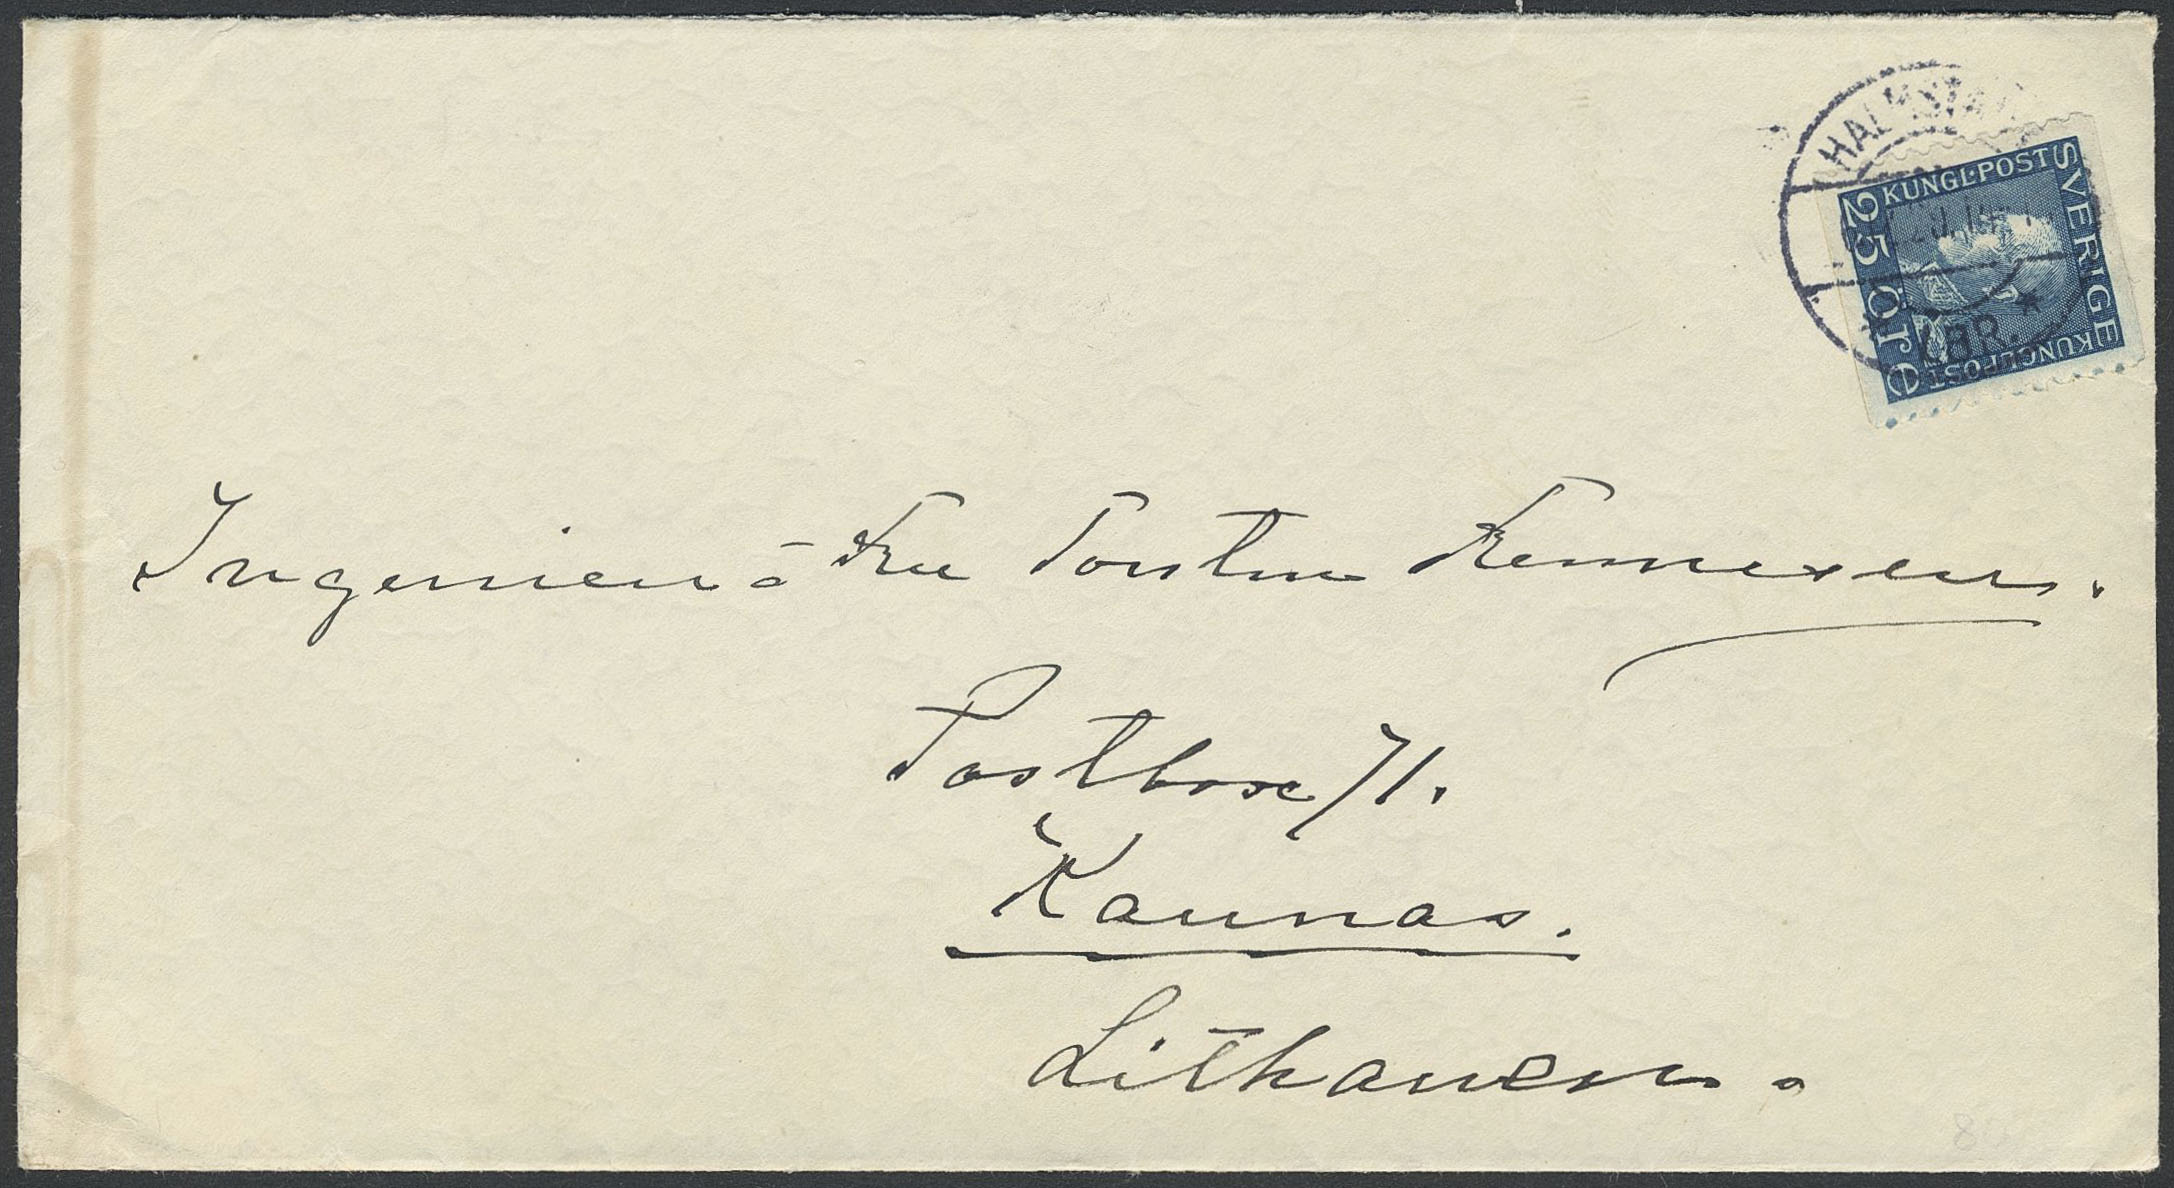 HALMSTAD
LBR.
KUNGL.POST
SVERIGE
25 öre
KUNGL.POST
Ingeniör Fru Torsten
Postbox 71.
Kaunas.
Lithauen.
80